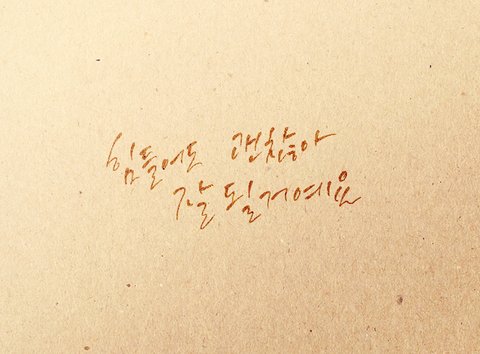 힘들어도 괜찮아
잘 될거예요